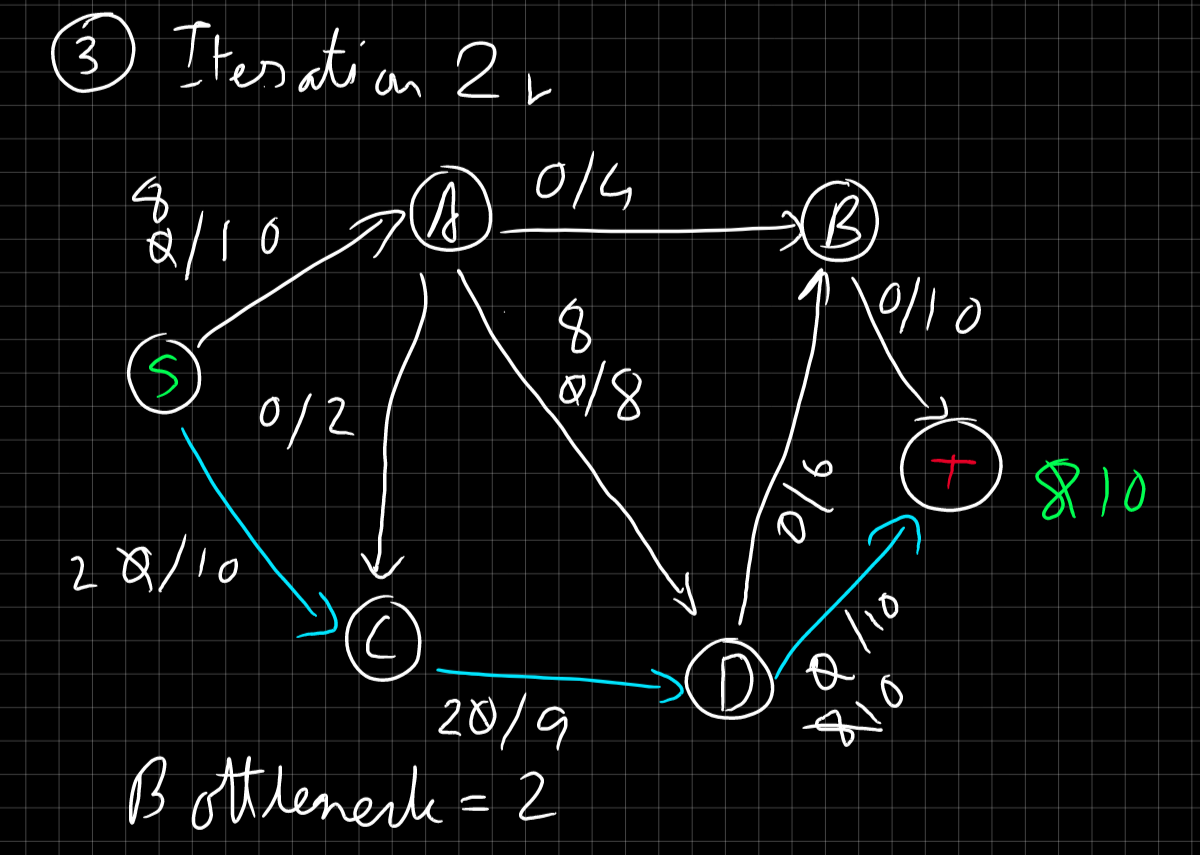 3 Iteration 2
8
0/10
A
0/4
B
0/10
S
0/2
8
0/8
T
8 10
0/6
2 0/10
C
D
0/10
8 10
2 0/9
Bottleneck = 2